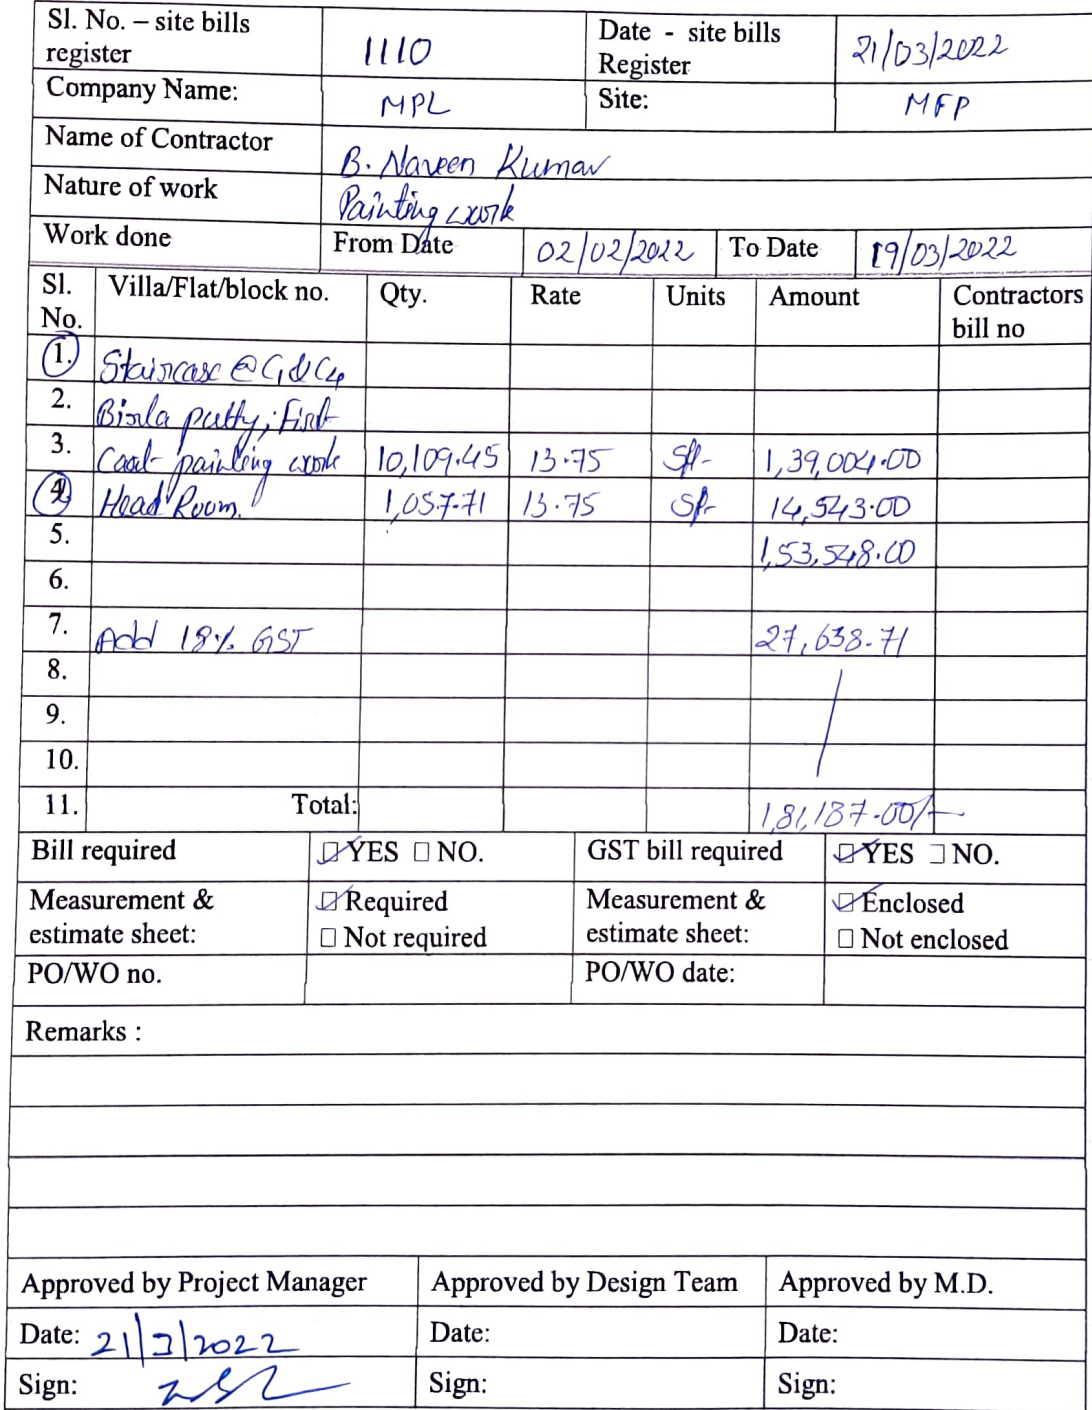 Sl. No. – site bills register 1110 Date - site bills Register 21/03/2022
Company Name: MPL Site: MFP
Name of Contractor B. Naveen Kumar
Nature of work Painting work
Work done From Date 02/02/2022 To Date 19/03/2022
Sl. No. Villa/Flat/block no. Qty. Rate Units Amount Contractors bill no
1. Staircase @ C1 & C4
2. Birla putty, First
3. Coat painting work 10,109.45 13.75 Sft 1,39,004.00
4. Head Room. 1,057.71 13.75 Sft 14,543.00
5. 1,53,548.00
6.
7. Add 18% GST 27,638.71
8.
9.
10.
11. Total: 1,81,187.00/-
Bill required YES NO. GST bill required YES NO.
Measurement & estimate sheet: Required Not required Measurement & estimate sheet: Enclosed Not enclosed
PO/WO no. PO/WO date:
Remarks :
Approved by Project Manager Approved by Design Team Approved by M.D.
Date: 21/3/2022 Date: Date:
Sign: Sign: Sign: